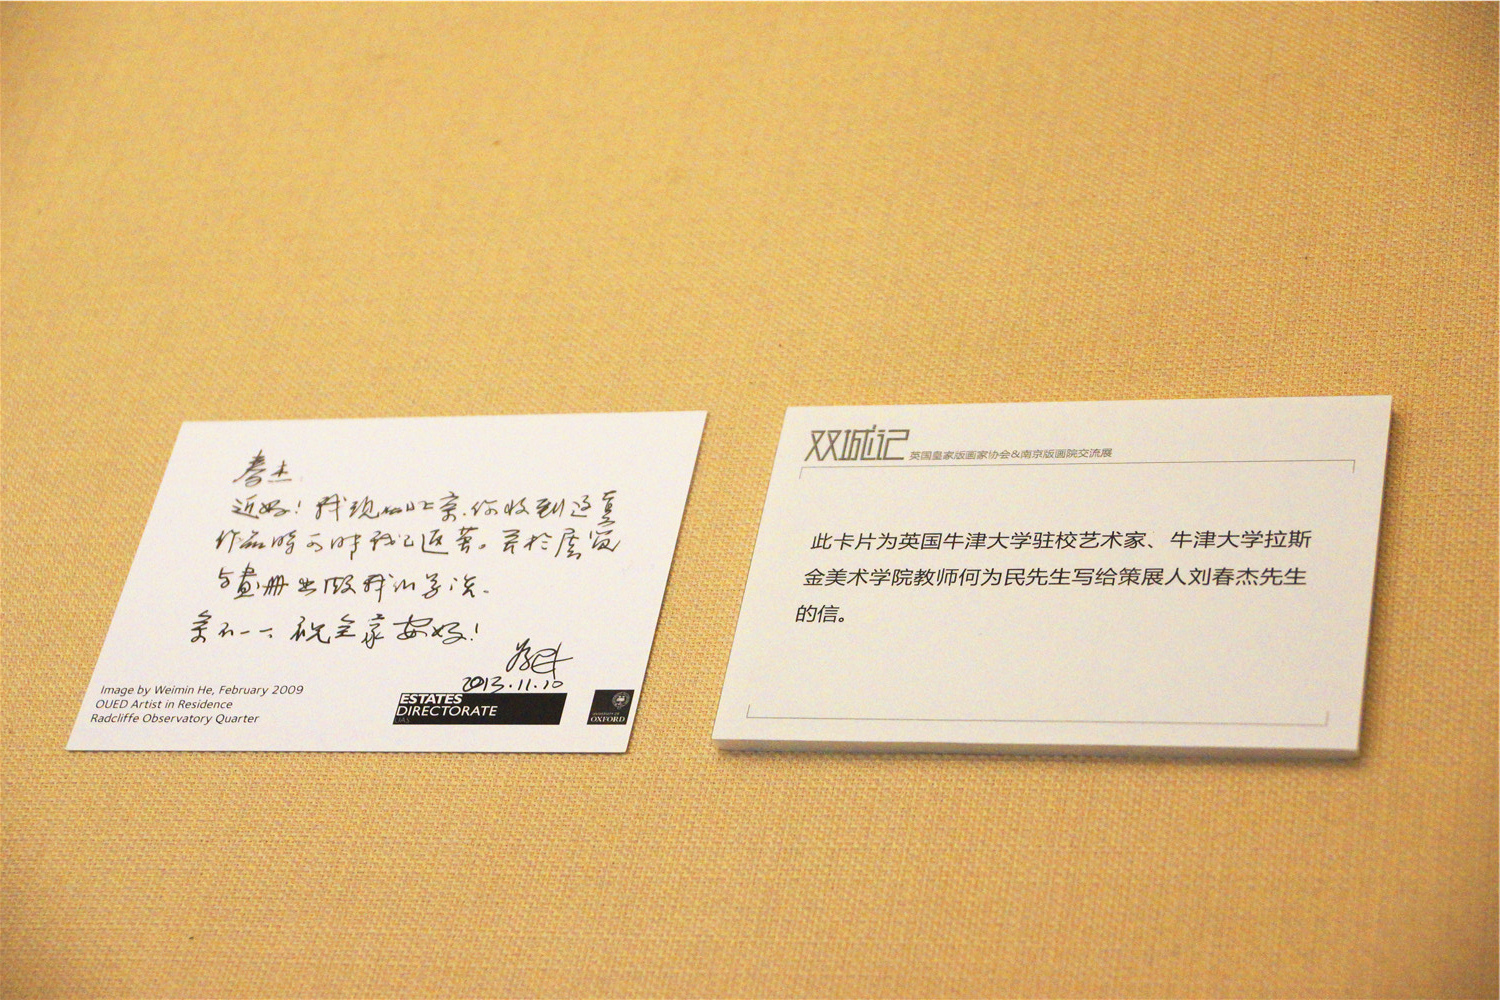 春杰
近好!我现in北京.你收到这真
作品时可时我已返英。关于展览
与画册出版我们马说.
余不一一 祝全家安好!
为民
2013.11.10
Image by Weimin He, February 2009
OUED Artist in Residence
Radcliffe Observatory Quarter
ESTATES
DIRECTORATE
UNIVERSITY OF
OXFORD
双城记 英国皇家版画家协会&南京版画院交流展
此卡片为英国牛津大学驻校艺术家、牛津大学拉斯
金美术学院教师何为民先生写给策展人刘春杰先生
的信。